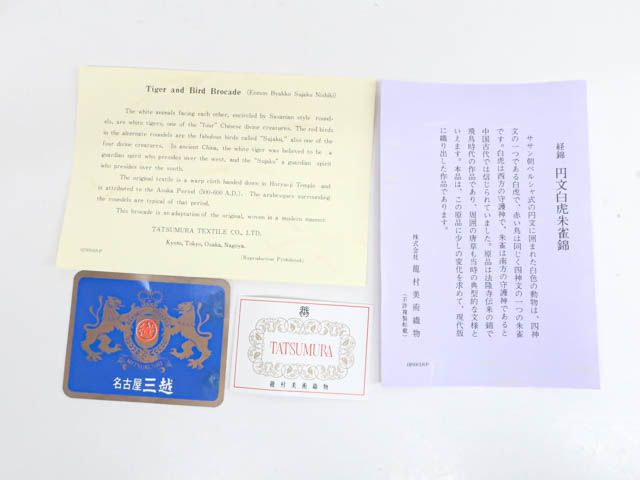 Tiger and Bird Brocade (Enmon Byakko Sujaku Nishiki)
The white animals facing each other, encircled by Sasanian style round-
els, are white tigers, one of the "four" Chinese divine creatures. The red birds
in the alternate roundels are the fabulous birds called "Sujaku," also one of the
four divine creatures. In ancient China, the white tiger was believed to be a
guardian spirit who presides over the west, and the "Sujaku" a guardian spirit
who presides over the south.
The original textile is a warp cloth handed down in Horyu-ji Temple and
is attributed to the Asuka Period (500-600 A.D.). The arabesques surrounding
the roundels are typical of that period.
This brocade is an adaptation of the original, woven in a modern manner.
TATSUMURA TEXTILE CO., LTD.
Kyoto, Tokyo, Osaka, Nagoya.
(Reproduction Prohibited)
経錦 円文白虎朱雀錦
ササン朝ペルシャ式の円文に囲まれた白色の動物は、四神
文の一つである白虎で、赤い鳥は同じく四神文の一つの朱雀
です。白虎は西方の守護神で、朱雀は南方の守護神であると
中国古代では信じられていました。原品は法隆寺伝来の錦で
飛鳥時代の作品であり、周囲の唐草も当時の典型的な文様と
いえます。本品は、この原品に少しの変化を求めて、現代版
に織り出した作品であります。
株式会社 龍村美術織物
(不許複製転載)
MITSUKOSHI
名古屋 三越
TATSUMURA
龍村美術織物